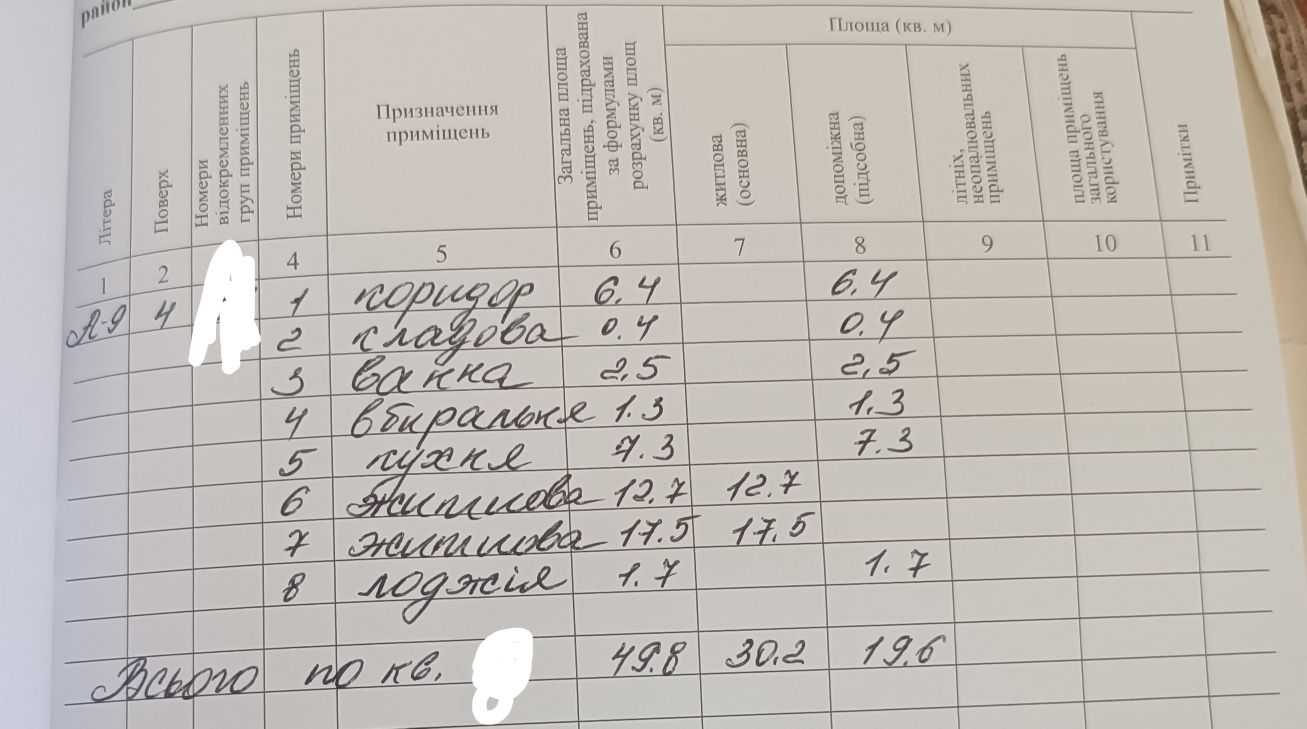 район
Літера Поверх Номери відокремленних груп приміщень Номери приміщень Призначення приміщень Загальна площа приміщень, підрахована за формулами розрахунку площ (кв. м) Площа (кв. м) житлова (основна) допоміжна (підсобна) літніх, неопалювальних приміщень площа приміщень загального користування Примітки
1 2 4 5 6 7 8 9 10 11
А-9 4 1 коридор 6.4 6.4
2 кладова 0.4 0.4
3 ванна 2,5 2,5
4 вбиральня 1.3 1.3
5 кухня 7.3 7.3
6 житлова 12.7 12.7
7 житлова 17.5 17.5
8 лоджія 1.7 1.7
Всього по кв. 49.8 30.2 19.6